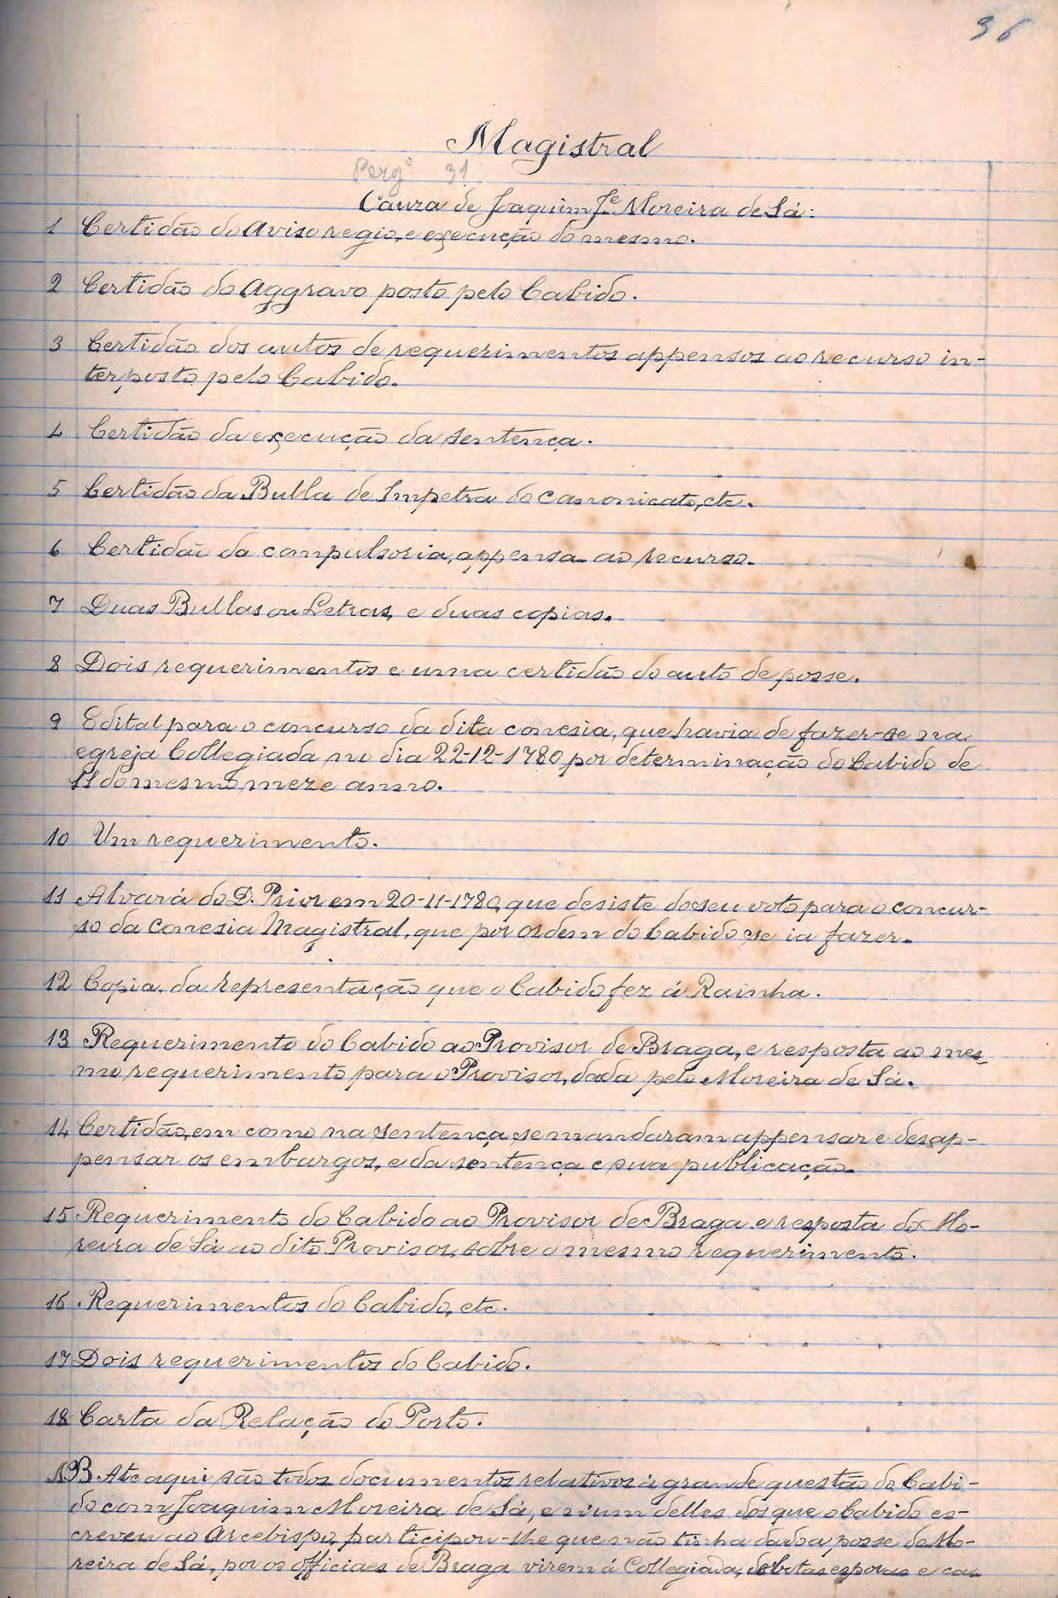 36
Magistral
Perg.º 31
Cauza de Joaquim J.e Moreira de Sá:
1 Certidão do Aviso regio, e execução do mesmo.
2 Certidão do Aggravo posto pelo Cabido.
3 Certidão dos autos de requerimentos appensos ao recurso in-
terposto pelo Cabido.
4 Certidão da execução da sentença.
5 Certidão da Bulla de Impetra do canonicato, etc.
6 Certidão da compulsoria, appensa ao recurso.
7 Duas Bullas ou Letras, e duas copias.
8 Dois requerimentos e uma certidão do auto de posse.
9 Edital para o concurso da dita conesia, que havia de fazer-se na
egreja Collegiada no dia 22-12-1780 por determinação do Cabido de
11 do mesmo mez e anno.
10 Um requerimento.
11 Alvará do D. Prior em 20-11-1780, que desiste do seu voto para o concur-
so da conesia Magistral, que por ordem do Cabido se ia fazer.
12 Copia da representação que o Cabido fez á Rainha.
13 Requerimento do Cabido ao Provisor de Braga, e resposta ao mes-
mo requerimento para o Provisor, dada pelo Moreira de Sá.
14 Certidão, em como na sentença se mandaram appensar e desap-
pensar os embargos, e da sentença e sua publicação.
15 Requerimento do Cabido ao Provisor de Braga e resposta do Mo-
reira de Sá ao dito Provisor, sobre o mesmo requerimento.
16 Requerimentos do Cabido, etc.
17 Dois requerimentos do Cabido.
18 Carta da Relação do Porto.
NB Ate aqui são todos documentos relativos á grande questão do Cabi-
do com Joaquim Moreira de Sá, e n'um delles dos que o Cabido es-
creveu ao Arcebispo, participou-lhe que não tinha dado a posse do Mo-
reira de Sá, por os officiaes de Braga virem á Collegiada, de botas esporas e ca-